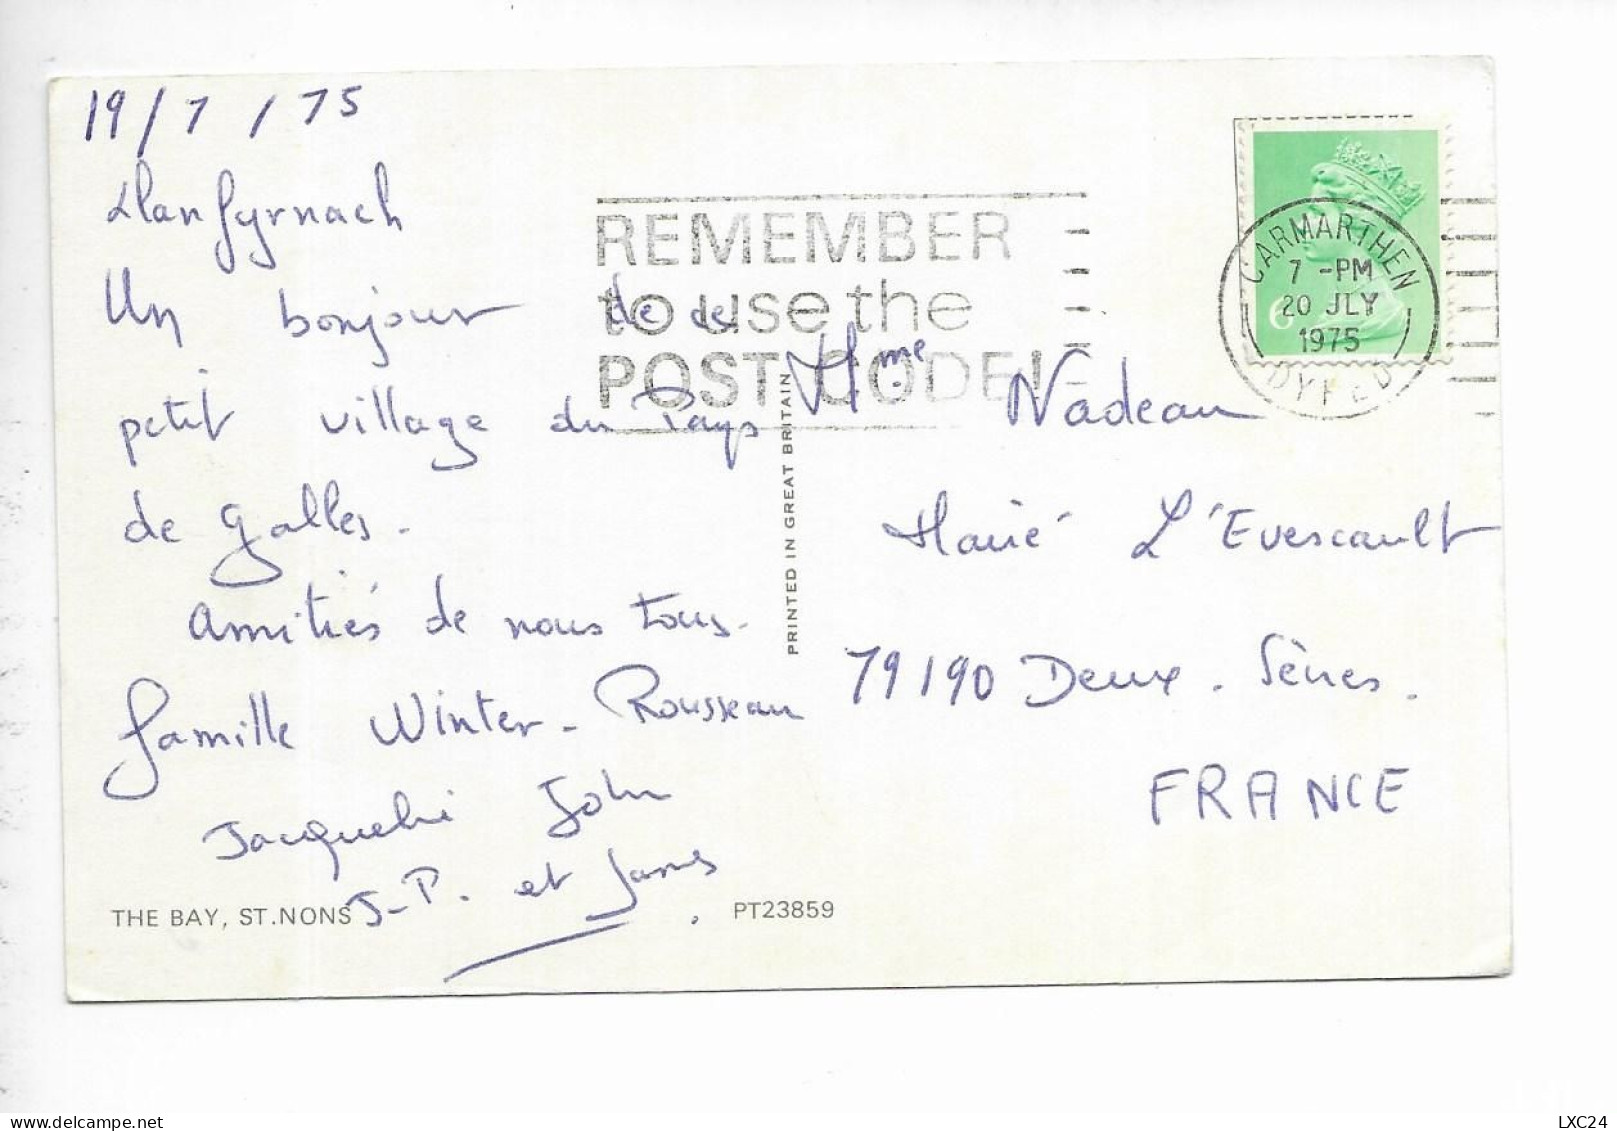 19/7/75
Llanfyrnach
Un bonjour de ce
petit village du Pays
de Galles.
Amitiés de nous tous.
famille Winter-Rousseau
Jacqueline John
J-P. et James.
THE BAY, ST.NONS
PT23859
PRINTED IN GREAT BRITAIN
REMEMBER
to use the
POST CODE!
CARMARTHEN
7 -PM
20 JLY
1975
DYFED
6
Mme Nadeau
Mairé L'Evescault
79190 Deux-Sèvres.
FRANCE
LXC24